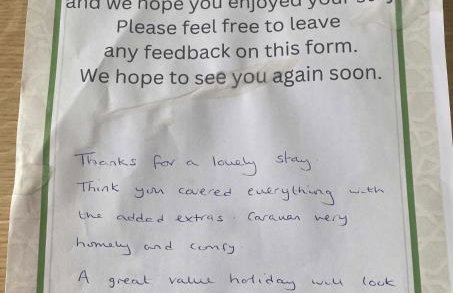 and we hope you enjoyed your stay
Please feel free to leave
any feedback on this form.
We hope to see you again soon.
Thanks for a lovely stay
Think you covered everything with
the added extras. Caravan very
homely and comfy
A great value holiday will look